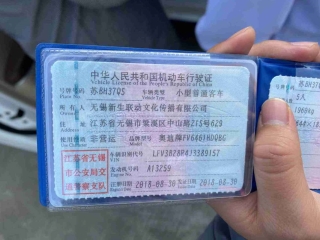 中华人民共和国机动车行驶证
Vehicle License of the People's Republic of China
号牌号码 苏BH37Q5 车辆类型 小型普通客车
Plate No. Vehicle Type
所有人 无锡新生联动文化传播有限公司
Owner
住址 江苏省无锡市梁溪区中山路215号629
Address
使用性质 非营运 品牌型号
Use Character Model
江苏省无锡市公安局交通警察支队
车辆识别代号
VIN
发动机号码
Engine No.
注册日期 2018-08-30 发证日期 2018-08-30
Register Date Issue Date
号牌号码
5人